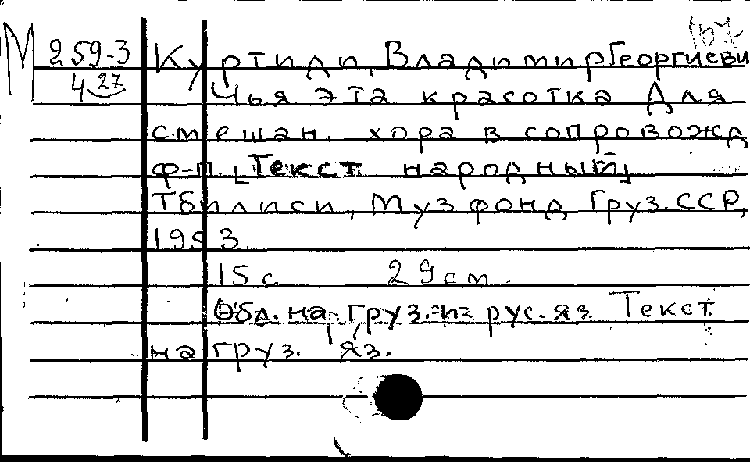 М 259-3 Куртиди, Владимир Георгиеви
4 27 Чья эта красотка Для
смешан. хора в сопровожд
ф-п [Текст народный]
Тбилиси, Музфонд Груз.ССР,
1953
15 с 29 см.
Обл. на груз. и рус. яз. Текст
на груз. яз.